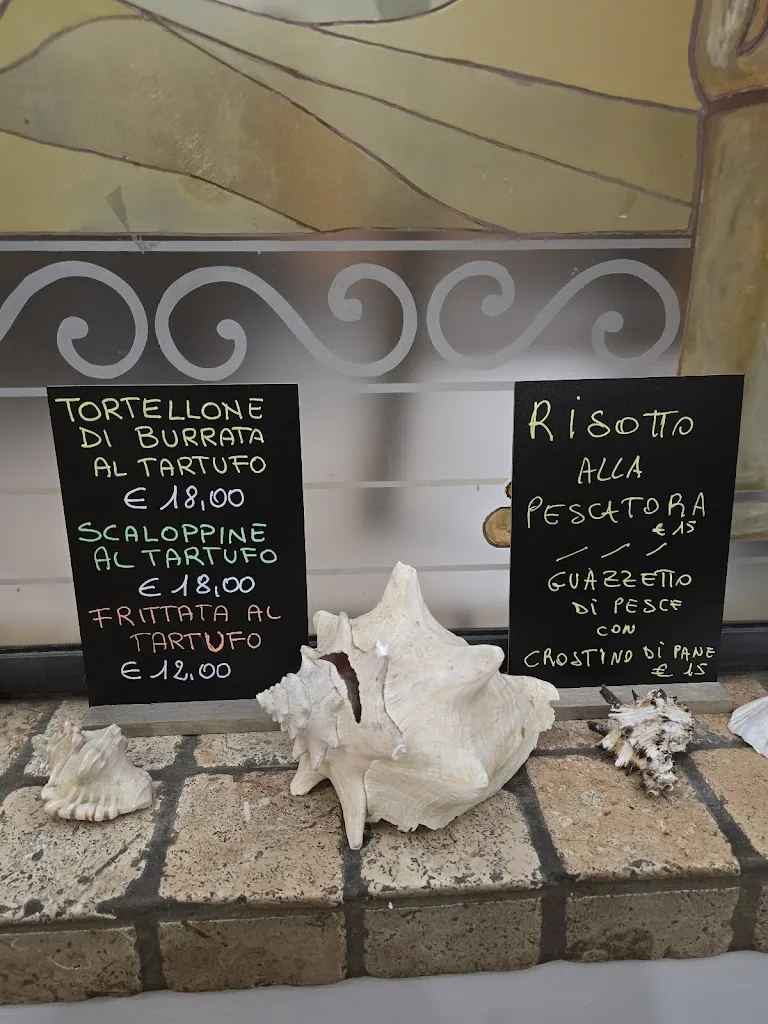 TORTELLONE
DI BURRATA
AL TARTUFO
€ 18,00
SCALOPPINE
AL TARTUFO
€ 18,00
FRITTATA AL
TARTUFO
€ 12,00
RiSOTTO
ALLA
PESCATORA
€ 15
GUAZZETTO
Di PESCE
CON
CROSTINO Di PANE
€ 15